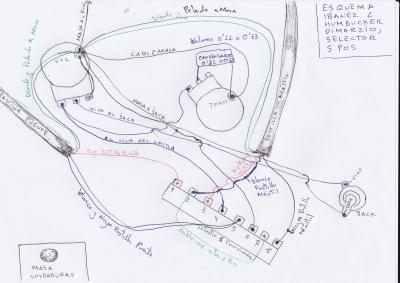 ESQUEMA
IBANEZ 2
HUMBUCKER
DIMARZIO,
SELECTOR
5 POS
Verde y Pelado a Masa
Valores 0'22 o 0'33
CABLE MASA
CONDENSADOR
0'22 o 0'33
VOL
TONO
VIVO AL JACK
MASA A JACK
AL VIVO DEL SWITCH
PASTILLA PUENTE
PASTILLA MASTIL
Verde y Pelado A MASA
Rojo Pastilla Puente
Blanco
Pastilla
Mástil
Negro Pastilla
Mástil
Blanco y Negro Pastilla Puente
1
2
3
4
5
6
7
8
Selector 5 Posiciones
VIVO
JACK
MASA
SOLDADURAS